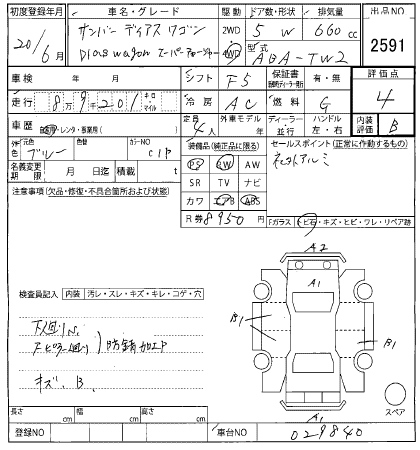 初度登録年月 車名・グレード 駆動 ドア数・形状 排気量 出品NO
20/6月 サンバー ディアス ワゴン 2WD 5 W 660cc 2591
Dias wagon スーパーチャージャー 4WD 型式 ABA-TW2
車検 年 月 シフト F5 保証書 有・無 評価点
走行 8万9千201 キロ・マイル 冷房 AC 燃料 G 4
車歴 自家用・レンタ・事業用( ) 定員 4人 外車モデル 年 ディーラー・並行 ハンドル 左・右 内装評価 B
外色 元色 ブルー 色替 カラーNO C1P 装備品(純正品に限る) セールスポイント(正常に作動するもの)
名義変更期限 月 日迄 積載 t PS PW AW 社外アルミ
注意事項(欠品・修復・不具合箇所および状態) SR TV ナビ
カワ エアB ABS
R券 8950円 Fガラス トビ石・キズ・ヒビ・ワレ・リペア跡
A2
A1
検査員記入 内装 汚レ・スレ・キズ・キレ・コゲ・穴 B1
B1
下廻り
防錆加工P
キズ、B
スペア
長さ cm 幅 cm 高さ cm A1
登録NO 車台NO 029840